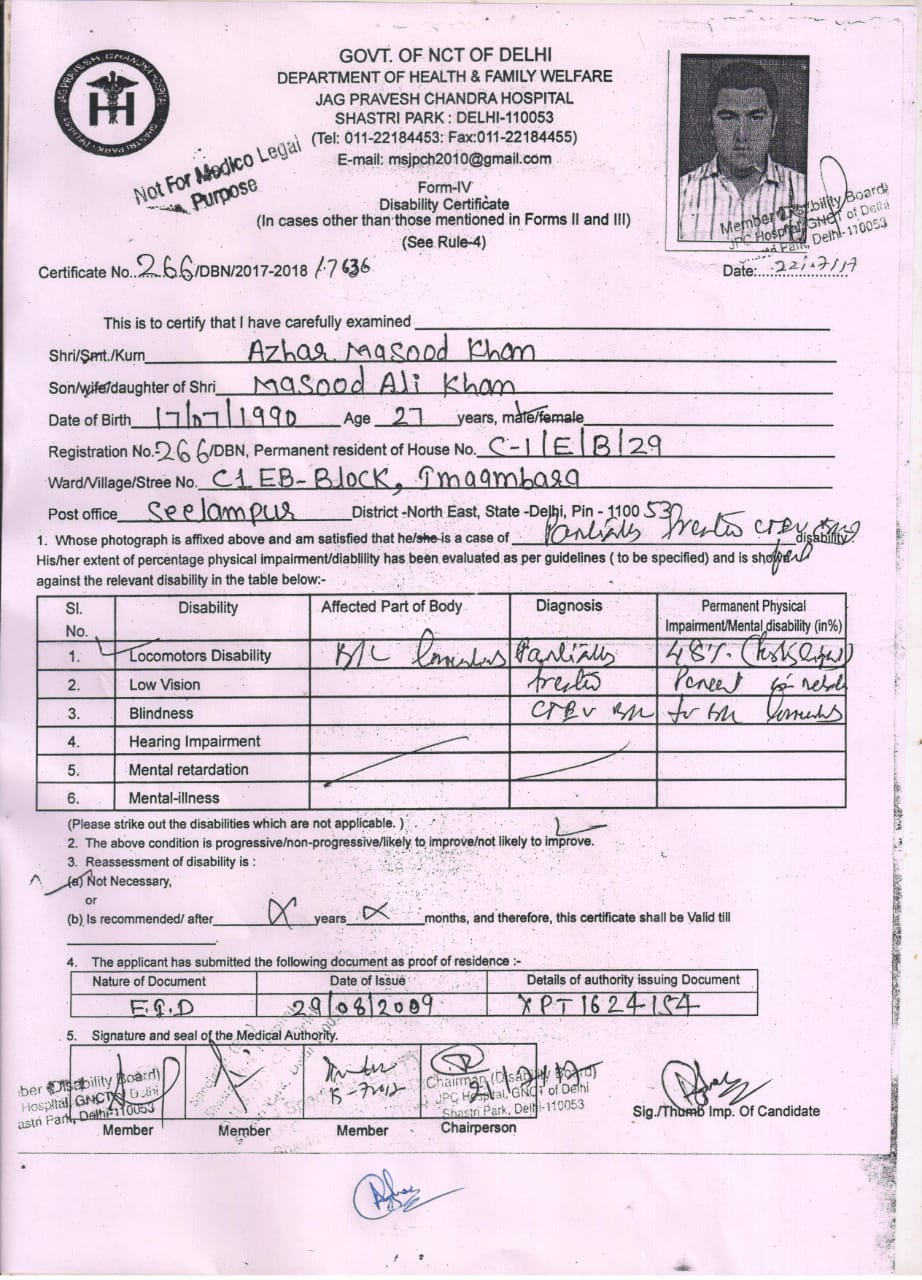 JAG PRAVESH CHANDRA HOSPITAL
SHASTRI PARK : DELHI-53
GOVT. OF NCT OF DELHI
DEPARTMENT OF HEALTH & FAMILY WELFARE
JAG PRAVESH CHANDRA HOSPITAL
SHASTRI PARK : DELHI-110053
(Tel: 011-22184453: Fax:011-22184455)
E-mail: msjpch2010@gmail.com
Not For Medico Legal
Purpose
Form-IV
Disability Certificate
(In cases other than those mentioned in Forms II and III)
(See Rule-4)
Member (Disability Board)
JPC Hospital, GNCT of Delhi
Park, Delhi-110053
Certificate No..266/DBN/2017-2018 /.7636
Date:
This is to certify that I have carefully examined
Shri/Smt./Kum Azhar Masood Khan
Son/wife/daughter of Shri Masood Ali Khan
Date of Birth 17/07/1990 Age 27 years, male/female
Registration No.266/DBN, Permanent resident of House No. C-1/E/B/29
Ward/Village/Stree No. C1 EB-Block, Imaambara
Post office Seelampur District -North East, State -Delhi, Pin - 110053
1. Whose photograph is affixed above and am satisfied that he/she is a case of Partially CTEV disability
His/her extent of percentage physical impairment/diablility has been evaluated as per guidelines ( to be specified) and is
against the relevant disability in the table below:-
Sl. No. Disability Affected Part of Body Diagnosis Permanent Physical Impairment/Mental disability (in%)
1. Locomotors Disability B/L Partially 48%
2. Low Vision
3. Blindness CTEV B/L
4. Hearing Impairment
5. Mental retardation
6. Mental-illness
(Please strike out the disabilities which are not applicable. )
2. The above condition is progressive/non-progressive/likely to improve/not likely to improve.
3. Reassessment of disability is :
(a) Not Necessary,
or
(b) Is recommended/ after years months, and therefore, this certificate shall be Valid till
4. The applicant has submitted the following document as proof of residence :-
Nature of Document Date of Issue Details of authority issuing Document
E.I.D 29/08/2009 XPT1624154
5. Signature and seal of the Medical Authority.
ber (Disability Board)
Hospital, GNCT of Delhi
astri Park, Delhi-110053
Chairman (Disability Board)
JPC Hospital, GNCT of Delhi
Shastri Park, Delhi-110053
Member Member Member Chairperson
Sig./Thumb Imp. Of Candidate